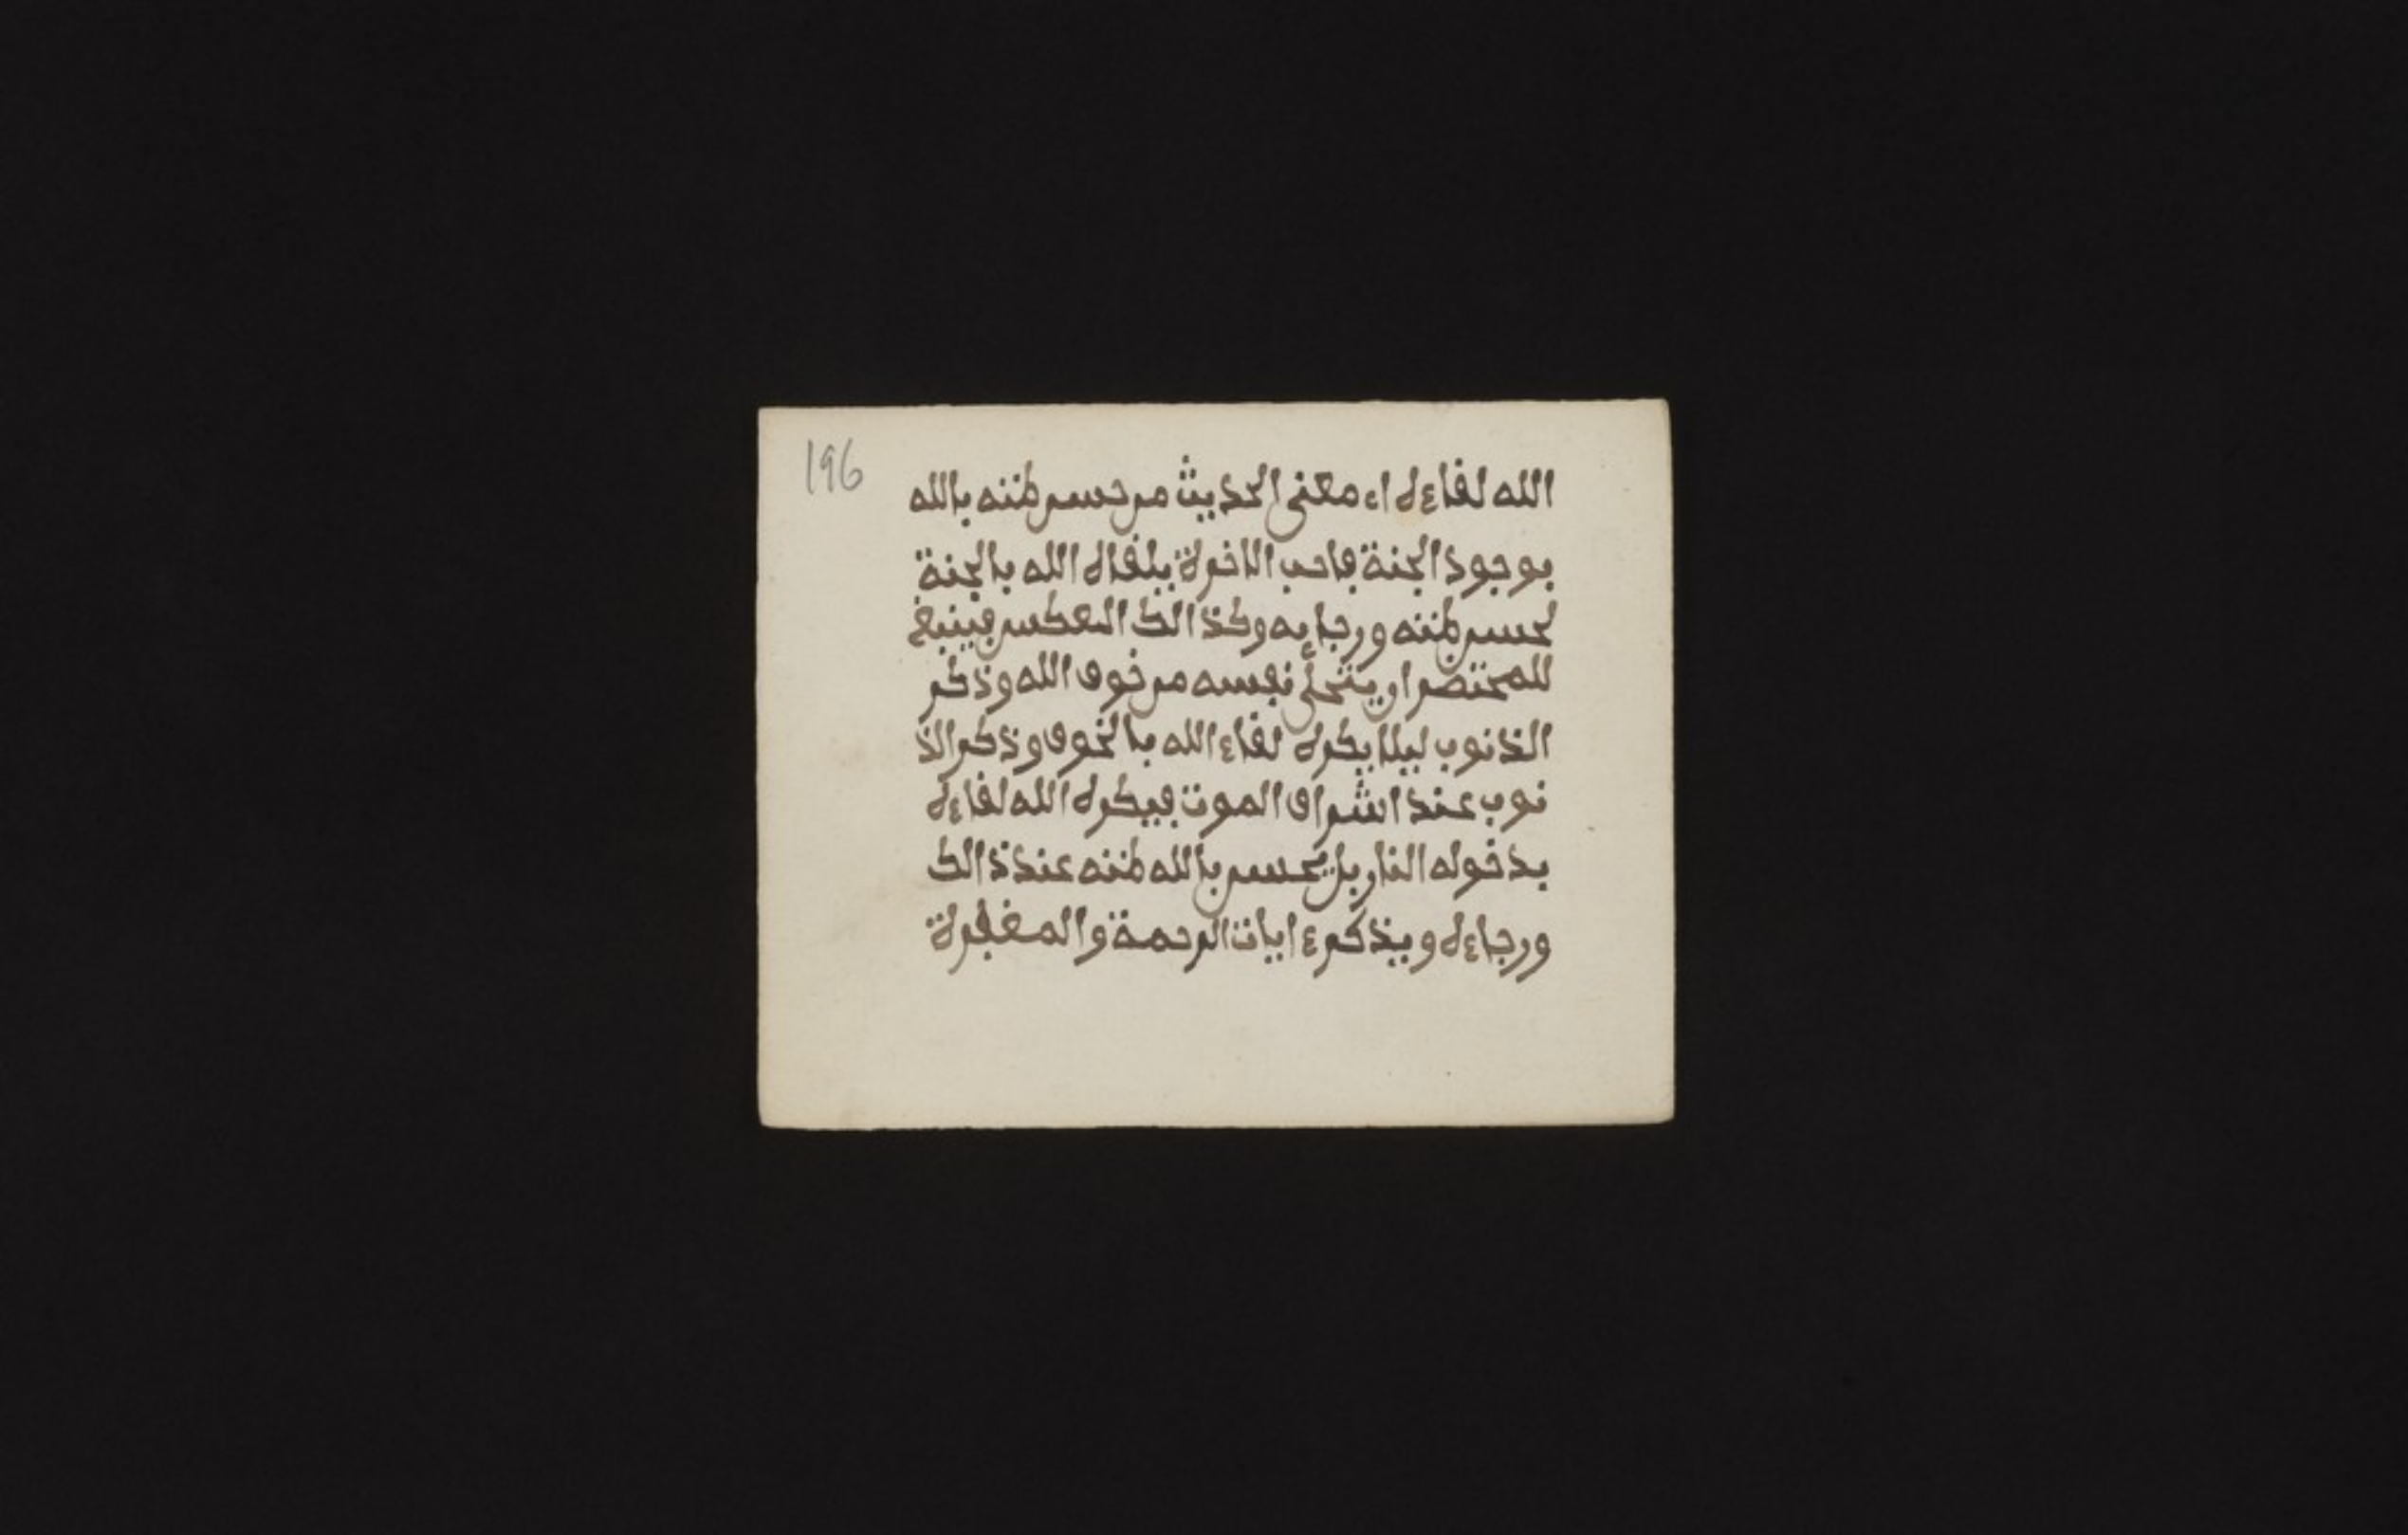 196
الله لفاءه اء معنى الحديث من حسن ظنه بالله
بوجود الجنة فاحب الاخرة يلفاه الله بالجنة
لحسن ظنه ورجايه وكذالك العكس فينبغ
للمحتضر ان يتخلى نفسه من خوف الله وذكر
الذنوب ليلا يكره لفاء الله بالخوف وذكر الذ
نوب عند اشراف الموت فيكره الله لفاءه
بدخوله النار بل يحسن بالله ظنه عند ذالك
ورجاءه ويذكر ءايات الرحمة والمغفرة